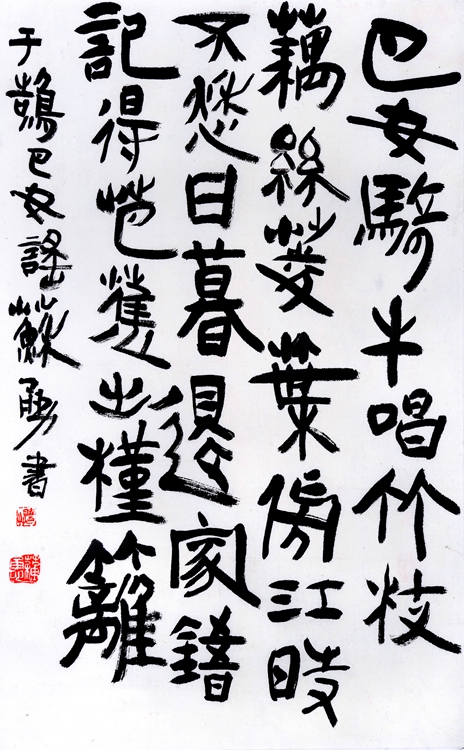 巴女騎牛唱竹枝
藕絲菱葉傍江時
不愁日暮還家錯
記得芭蕉出槿籬
于鵠巴女謠蘇勇書